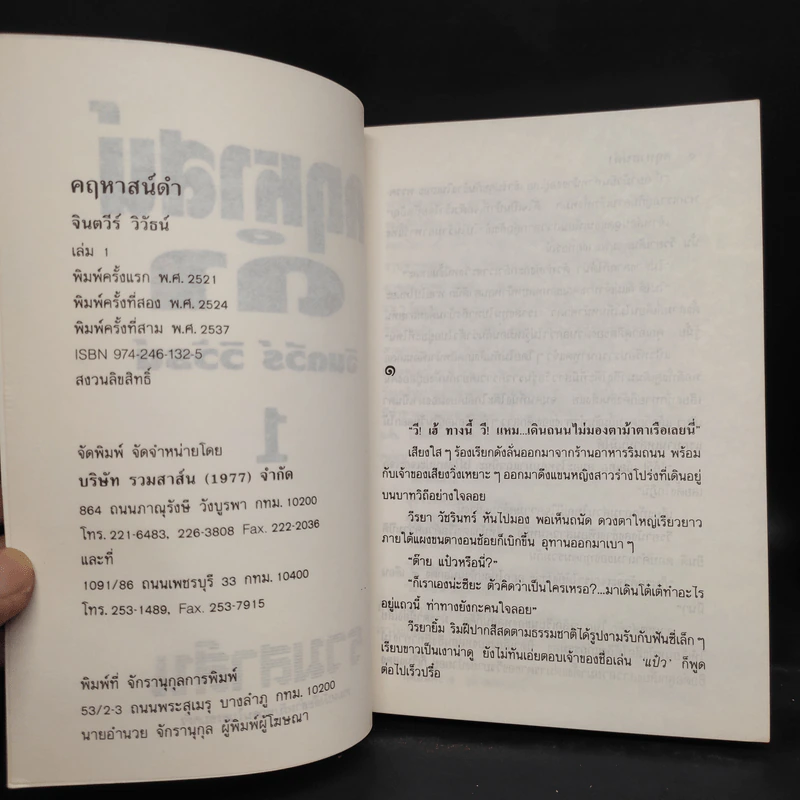 คฤหาสน์ดำ
จินตวีร์ วิวัธน์
เล่ม 1
พิมพ์ครั้งแรก พ.ศ. 2521
พิมพ์ครั้งที่สอง พ.ศ. 2524
พิมพ์ครั้งที่สาม พ.ศ. 2537
ISBN 974-246-132-5
สงวนลิขสิทธิ์
จัดพิมพ์ จัดจำหน่ายโดย
บริษัท รวมสาส์น (1977) จำกัด
864 ถนนภาณุรังษี วังบูรพา กทม. 10200
โทร. 221-6483, 226-3808 Fax. 222-2036
และที่
1091/86 ถนนเพชรบุรี 33 กทม. 10400
โทร. 253-1489, Fax. 253-7915
พิมพ์ที่ จักรานุกูลการพิมพ์
53/2-3 ถนนพระสุเมรุ บางลำภู กทม. 10200
นายอำนวย จักรานุกุล ผู้พิมพ์ผู้โฆษณา
๑
"วี! เฮ้ ทางนี้ วี! แหม...เดินถนนไม่มองตาม้าตาเรือเลยนี่"
เสียงใส ๆ ร้องเรียกดังลั่นออกมาจากร้านอาหารริมถนน พร้อม
กับเจ้าของเสียงวิ่งเหยาะ ๆ ออกมาดึงแขนหญิงสาวร่างโปร่งที่เดินอยู่
บนบาทวิถีอย่างใจลอย
วีรยา วัชรินทร์ หันไปมอง พอเห็นถนัด ดวงตาใหญ่เรียวยาว
ภายใต้แผงขนตางอนช้อยก็เบิกขึ้น อุทานออกมาเบา ๆ
"ต๊าย แป๋วหรือนี่?"
"ก็เราเองน่ะซียะ ตัวคิดว่าเป็นใครเหรอ?...มาเดินโต๋เต๋ทำอะไร
อยู่แถวนี้ ท่าทางยังกะคนใจลอย"
วีรยายิ้ม ริมฝีปากสีสดตามธรรมชาติได้รูปงามรับกับฟันซี่เล็ก ๆ
เรียบขาวเป็นเงาน่าดู ยังไม่ทันเอ่ยตอบเจ้าของชื่อเล่น 'แป๋ว' ก็พูด
ต่อไปเร็วปรื๋อ